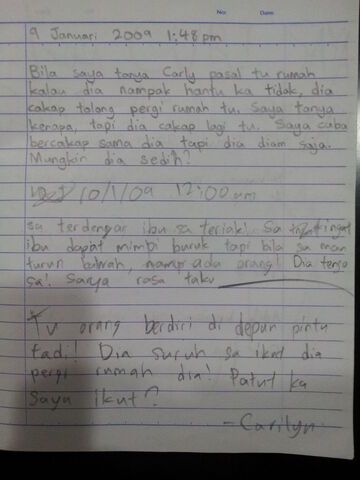 No:
Date:
9 Januari 2009 1:48pm
Bila saya tanya Carly pasal tu rumah
kalau dia nampak hantu ka tidak, dia
cakap tolong pergi rumah tu. Saya tanya
kenapa, tapi dia cakap lagi tu. Saya cuba
bercakap sama dia tapi dia diam saja.
Mungkin dia sedih?
10/1/09 12:00am
Sa terdengar ibu sa teriak! Sa
ibu dapat mimpi buruk tapi bila sa mau
turun bawah, nampa ada orang! Dia
sa! Saya rasa taku
Tu orang berdiri di depan pintu
tadi! Dia suruh sa ikut dia
pergi rumah dia! Patut ka
saya ikut?
- Carilyn